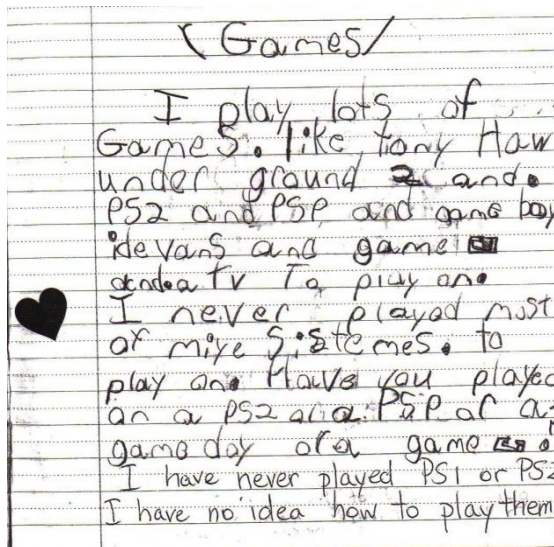 (Games/
I play lots of
Games. like tony Haw
under ground 2 and.
PS2 and PSP and game boy
idevans and game
and.a tv To play on.
I never played must
of miye sistemes. to
play on. Have you played
on a PS2 or a PSP or a
game day or a game
I have never played PS1 or PS2
I have no idea how to play them